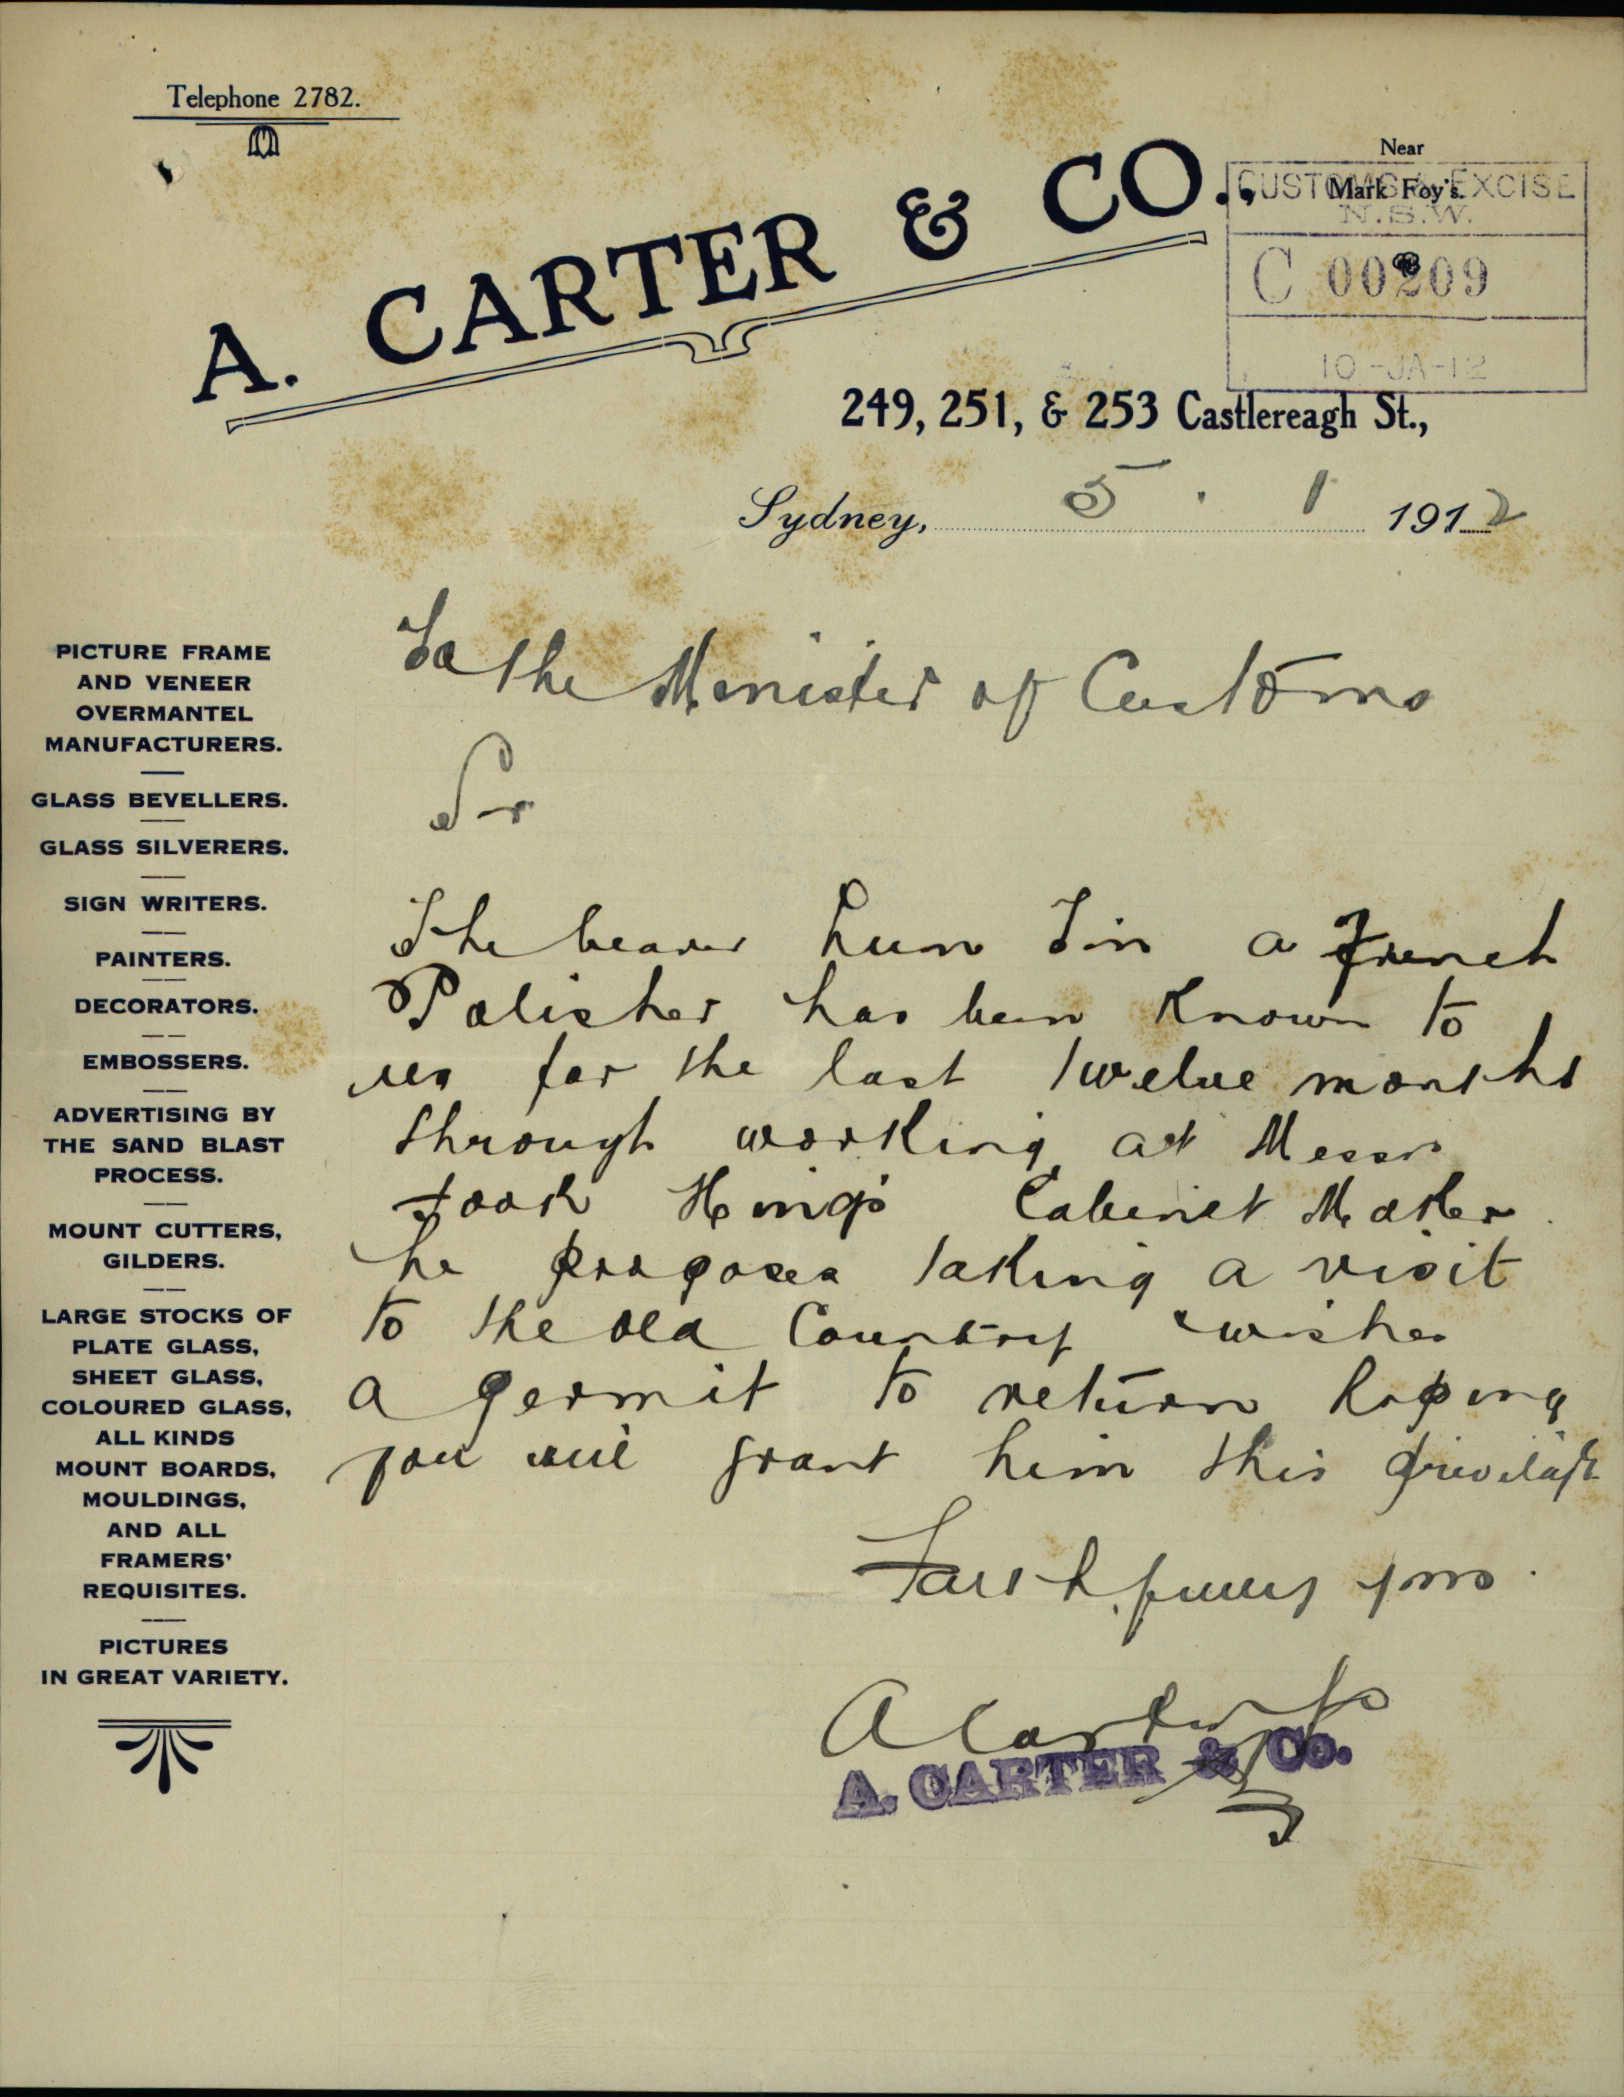 Telephone 2782.
A. CARTER & CO.,
Near
Mark Foy's.
CUSTOMS & EXCISE
N.S.W.
C 00209
10-JA-12
249, 251, & 253 Castlereagh St.,
Sydney, 5 . 1 1912
PICTURE FRAME
AND VENEER
OVERMANTEL
MANUFACTURERS.
GLASS BEVELLERS.
GLASS SILVERERS.
SIGN WRITERS.
PAINTERS.
DECORATORS.
EMBOSSERS.
ADVERTISING BY
THE SAND BLAST
PROCESS.
MOUNT CUTTERS,
GILDERS.
LARGE STOCKS OF
PLATE GLASS,
SHEET GLASS,
COLOURED GLASS,
ALL KINDS
MOUNT BOARDS,
MOULDINGS,
AND ALL
FRAMERS'
REQUISITES.
PICTURES
IN GREAT VARIETY.
To the Minister of Customs
Sir
The bearer Hum Tin a French
Polisher has been known to
us for the last twelve months
through working at Messrs
Hing's Cabinet Maker
he proposes taking a visit
to the old Country wishes
a permit to return hoping
you will grant him this privilage
Faithfully yours.
A Carter & Co
A. CARTER & Co.